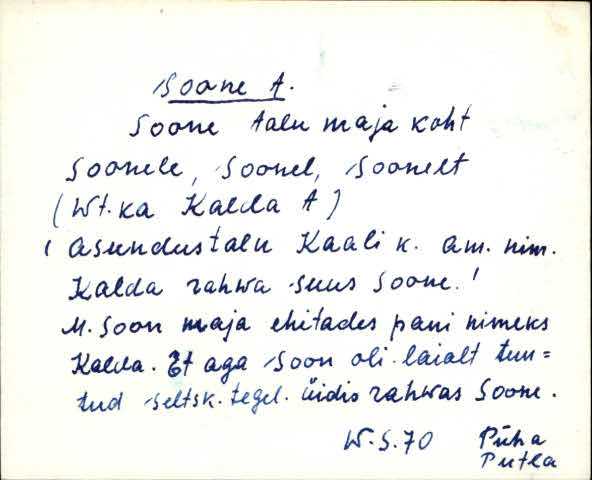 Soone A.
Soone talu maja koht
Soonele, Soonel, Soonelt
(Wt. ka Kalda A)
(asundustalu Kaali k. am. nim.
Kalda rahwa suus Soone!
M. Soon maja ehitades pani nimeks
Kalda. Et aga Soon oli laialt tun=
tud seltsk. tegel. üidis rahwas Soone.
W.S.70 Püha
Putla